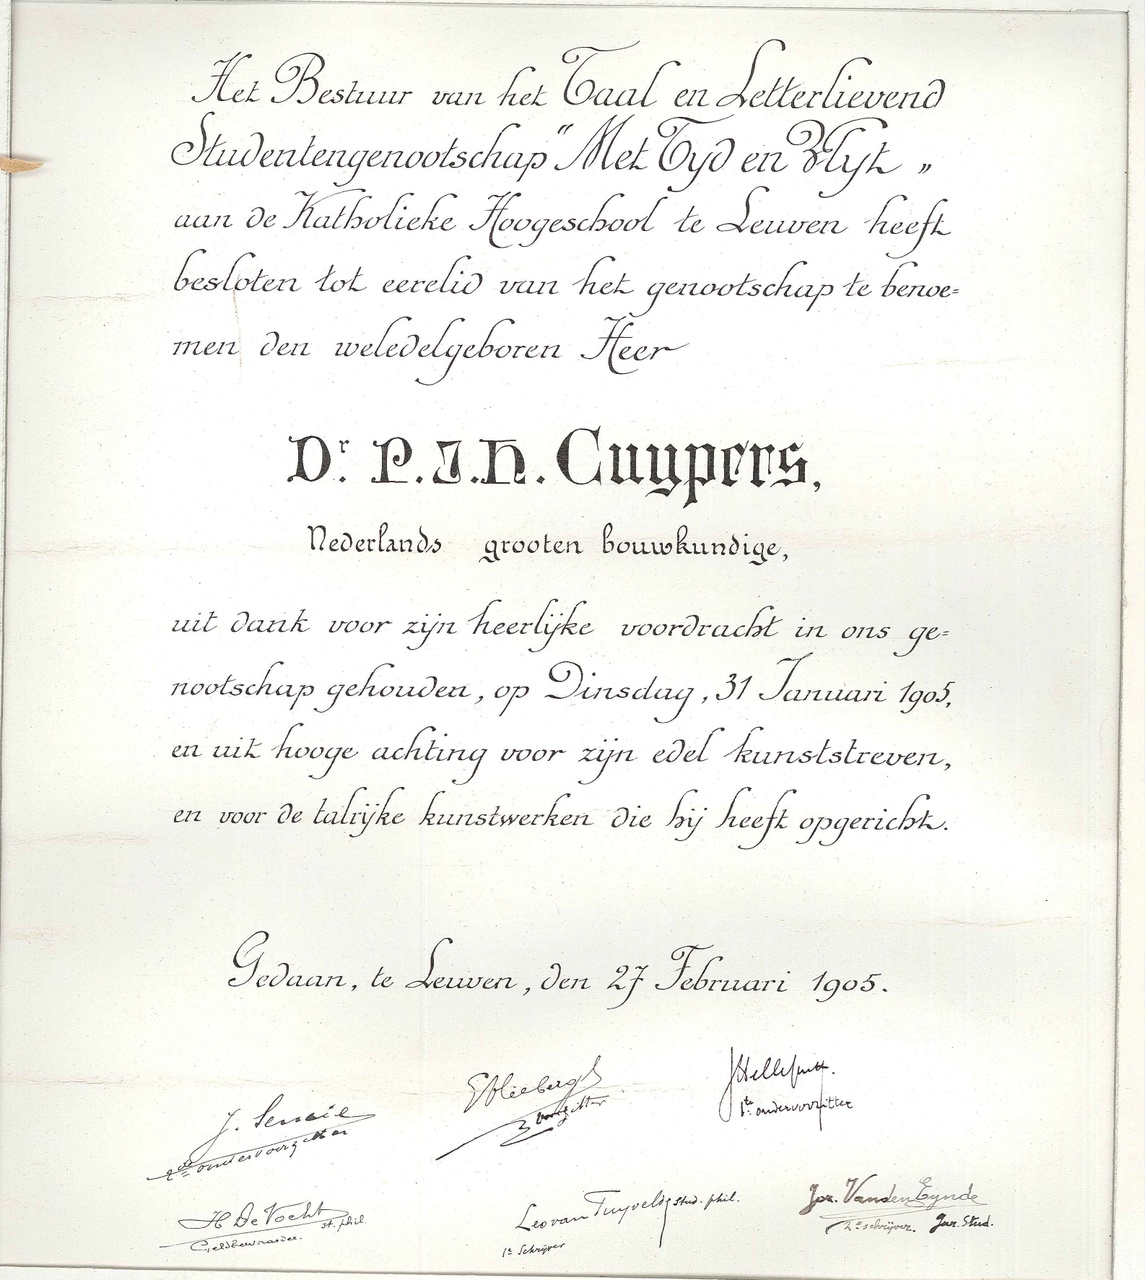 Het Bestuur van het Taal en Letterlievend
Studentengenootschap "Met Tyd en Vlyt„
aan de Katholieke Hoogeschool te Leuven heeft
besloten tot eerelid van het genootschap te benoe=
men den weledelgeboren Heer
Dr. P.J.H. Cuypers,
Nederlands grooten bouwkundige,
uit dank voor zijn heerlijke voordracht in ons ge=
nootschap gehouden, op Dinsdag, 31 Januari 1905,
en uit hooge achting voor zijn edel kunststreven,
en voor de talrijke kunstwerken die hij heeft opgericht.
Gedaan, te Leuven, den 27 Februari 1905.
E Vliebergh
voorzitter
J Helleputte.
1ste ondervoorzitter
J.
2de ondervoorzitter
H De Vocht st. phil.
Geldbewaarder.
Leo van Puyvelde stud. phil.
1e Schrijver
Joz. Vanden Eynde
2e schrijver. Jur. Stud.